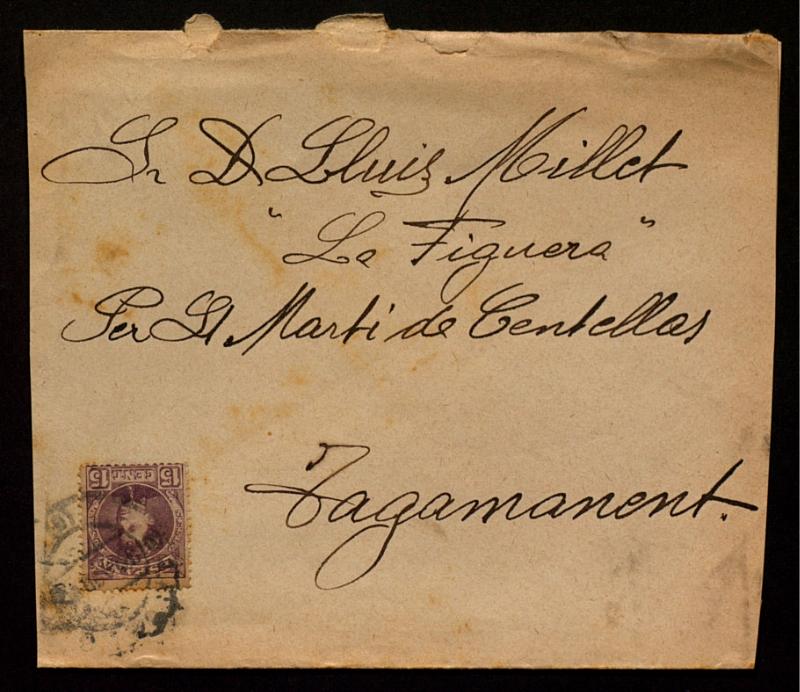 Sr D Lluis Millet
"La Figuera"
Per St Marti de Centellas
Tagamanent.
15 CENTS 15